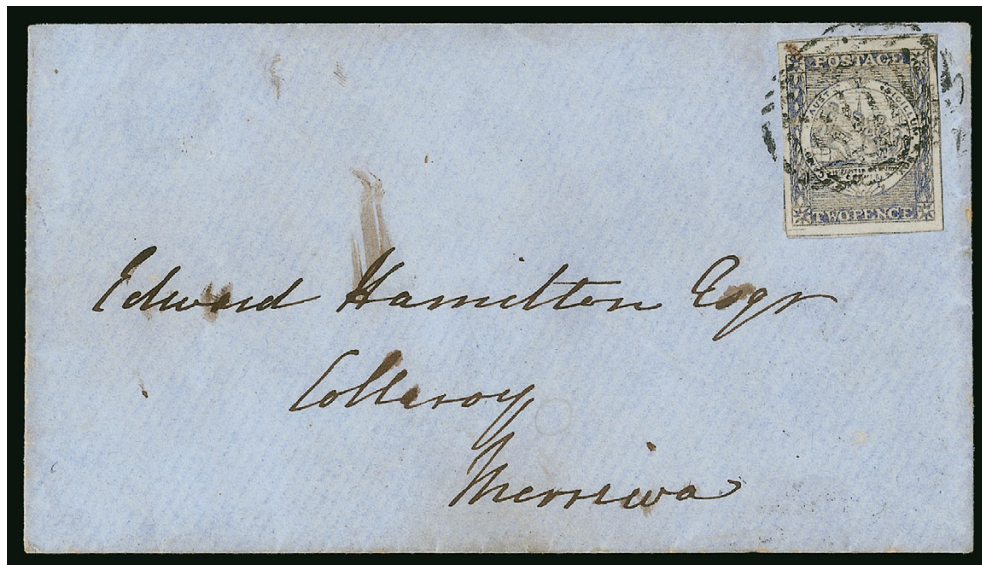 POSTAGE
TWO PENCE
Edward Hamilton Esqr
Collaroy
Merriwa